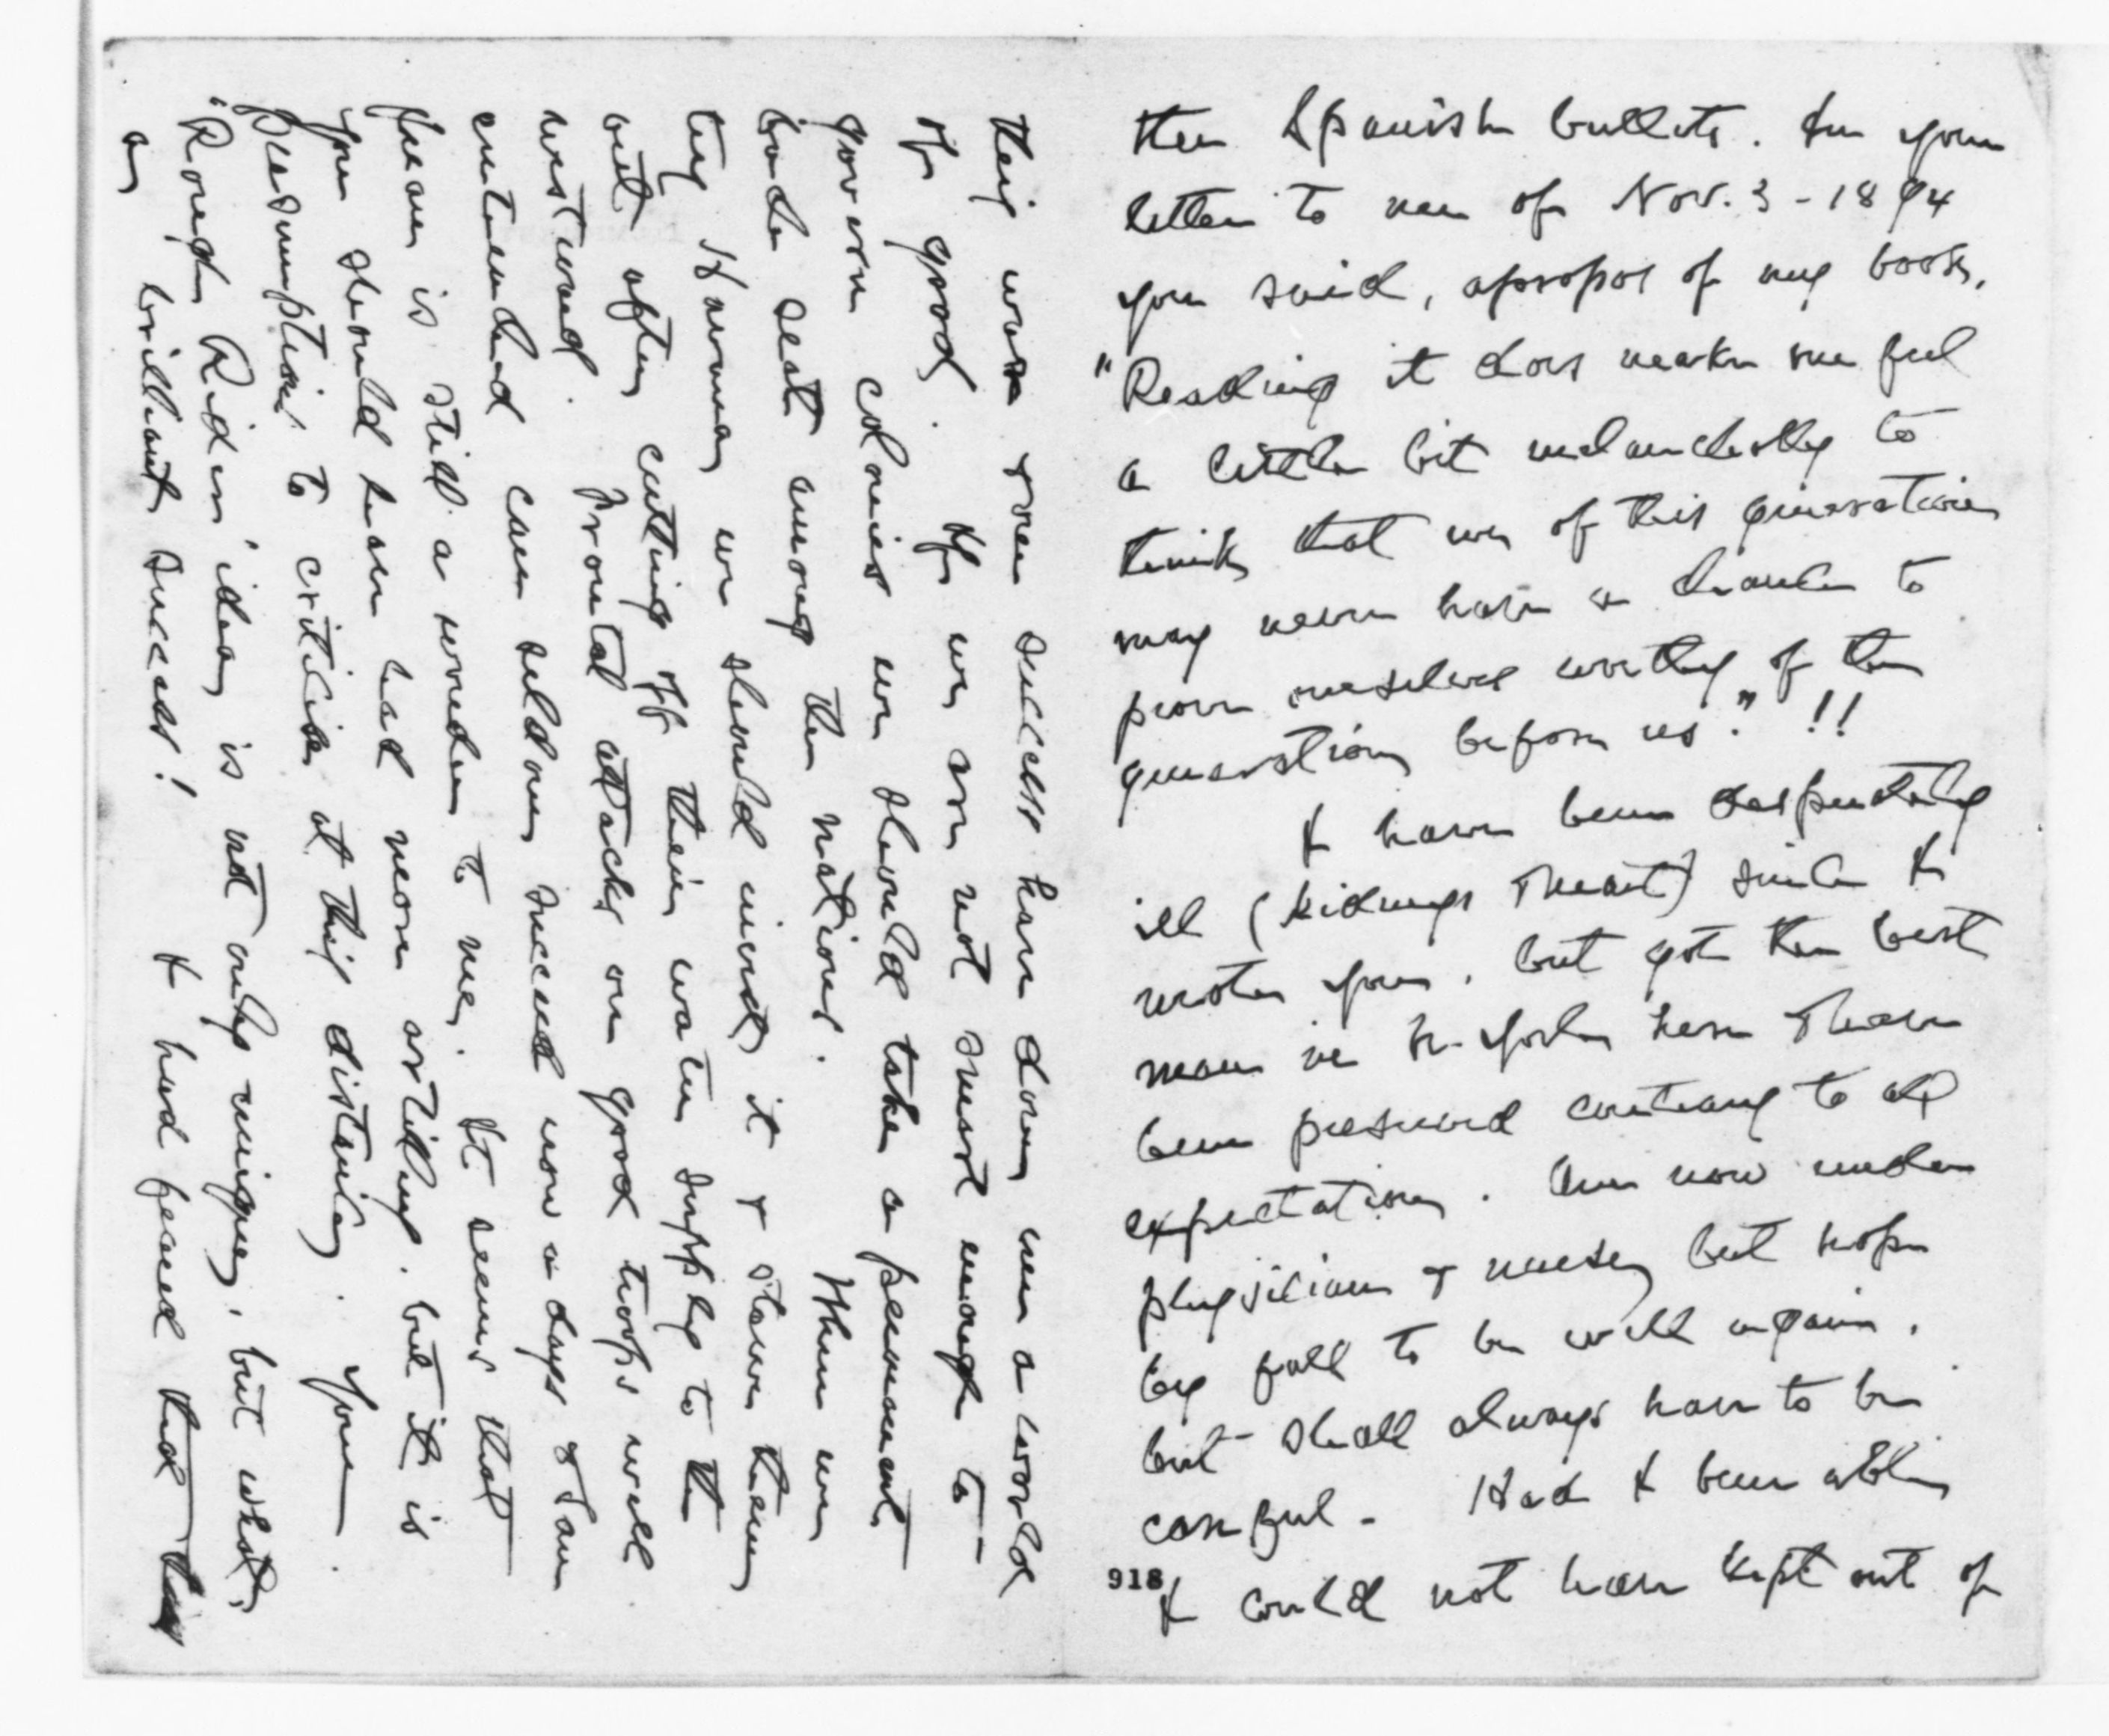 the Spanish bullets. In your
letter to me of Nov. 3 - 1894
you said, apropos of my book,
"Reading it does make me feel
a little bit melancholy to
think that we of this generation
may never have a chance to
prove ourselves worthy of the
generation before us." !!
I have been desperately
ill (kidneys & heart) since I
wrote you, but got the best
man in N. York here & have
been preserved contrary to all
expectation. Am now under
physician & nurse, but hope
by fall to be well again,
but shall always have to be
careful - Had I been able
918
I could not have kept out of
this war & our success have done us a world
of good. If we are not smart enough to
govern colonies we should take a permanent
back seat among the nations. When we
try Havana we should invest it & starve them
out after cutting off their water supply to the
westward. Frontal attacks on good troops well
entrenched can seldom succeed now a days & San
Juan is still a wonder to me. It seems that
you should have had more artillery. but it is
presumption to criticise at this distance. Your
"Rough Rider" idea is not only unique, but what
a brilliant success! I had feared that they